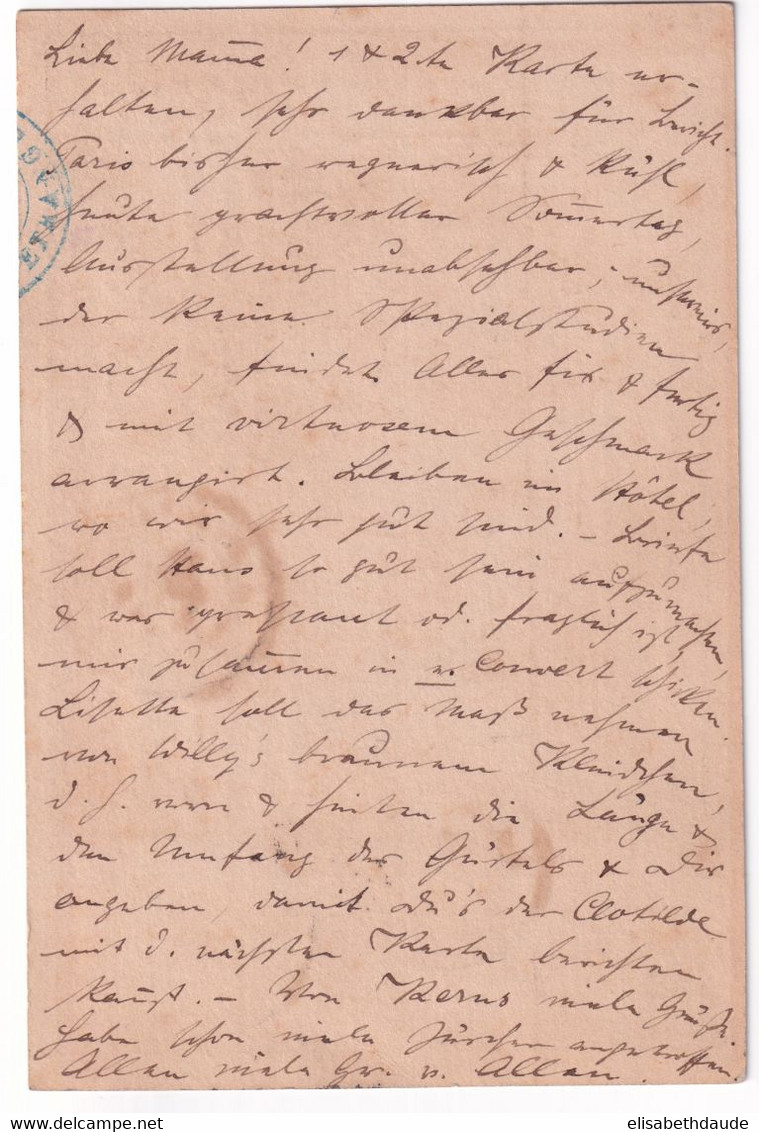 Liebe Mama! 1 & 2te Karte er-
halten, sehr dankbar für Bericht.
Paris bisher regnerisch & kühl,
heute prachtvoller Sommertag,
Ausstellung unabsehbar,
der keine Spezialstudien
macht, findet Alles fix & fertig
& mit virtuosem Geschmack
arrangirt. Bleiben im Hôtel,
wo wir sehr gut sind. – Briefe
soll Hans so gut sein aufzumachen,
& was pressant od. fraglich ist,
mir zusammen in er. Couvert schicken.
Lisette soll das Maß nehmen
von Willy's braunem Kleidchen,
d. h. vorn & hinten die Länge &
den Umfang des Gürtels & Dir
angeben, damit Du's der Clotilde
mit d. nächsten Karte berichten
kannst. – Von Kerns viele Grüße.
Habe schon viele Zürcher angetroffen.
Allen viele Gr. v. Allen.
elisabethdaude